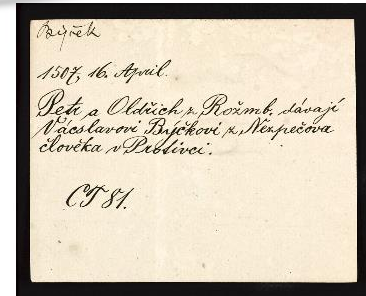 Býček
1507, 16. April.
Petr a Oldřich z Rožmb. dávají
Vácslavovi Býčkovi z Nezpečova
člověka v Protivci.
CT 81.